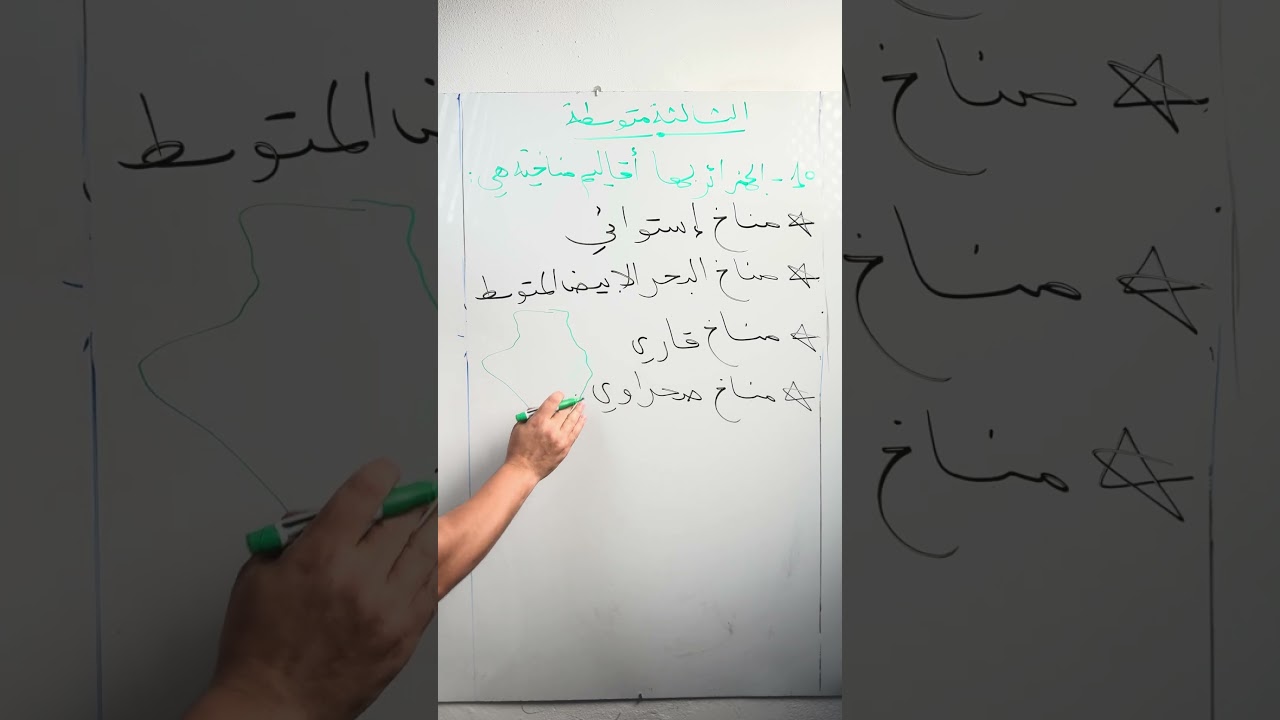 الثالثة متوسطة
1° - الجزائر بها أقاليم مناخية هي:
☆ مناخ إستوائي
☆ مناخ البحر الابيض المتوسط
☆ مناخ قاري
☆ مناخ صحراوي